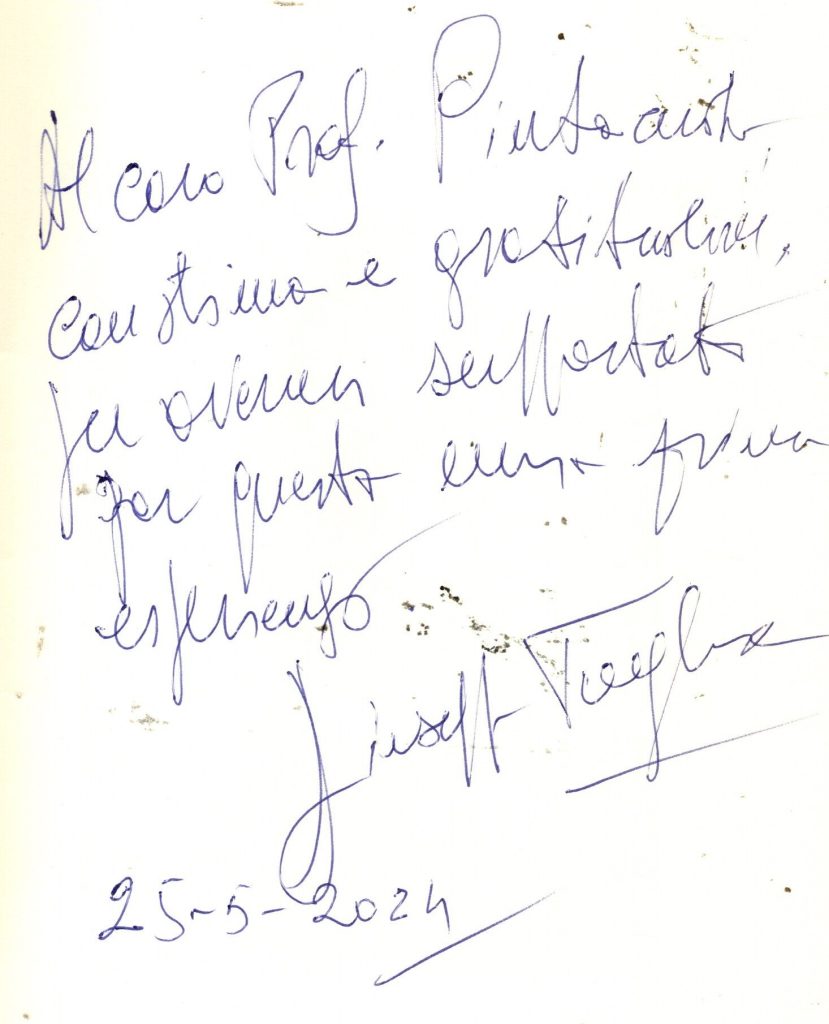 Al caro Prof. Pintacuda,
con stima e gratitudine,
per avermi supportato
per questa mia prima
esperienza
Giuseppe
25-5-2024